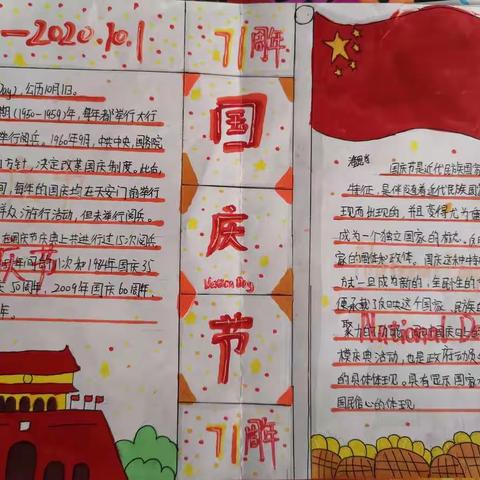 —2020.10.1
Day),公历10月1日。
期(1950-1959)年,每年都举行大行
举行阅兵。1960年9月,中共中央、国务院
方针,决定改革国庆制度。此自
间,每年的国庆均在天安门前举行
群众游行活动,但未举行阅兵。
在国庆节庆典上共进行过15次阅兵
年间的11次和1984年国庆35
50周年、2009年国庆60周年、
年。
庆节
71周年
国
庆
节
71周年
国庆节是近代民族国家
特征,是伴随着近代民族国
现而出现的,并且变得尤为重
成为一个独立国家的标志,
家的国体和政体。国庆这种特
方式一旦成为新的、全民性的
便承载了反映这个国家、民族的
National D
模庆典活动,也是政府动员
的具体体现。具有显示国家
国民信心的体现